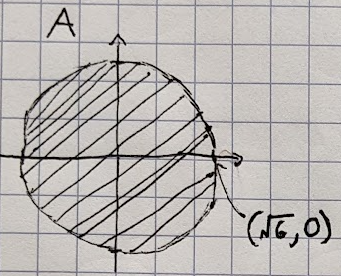 A
(√6, 0)